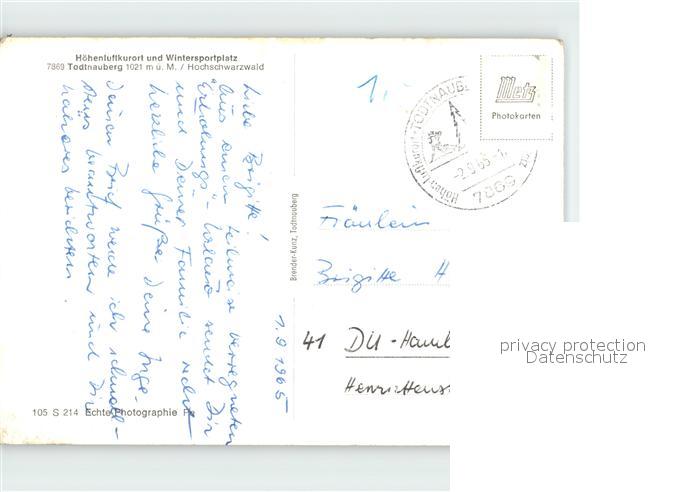 Höhenluftkurort und Wintersportplatz
7869 Todtnauberg 1021 m ü. M. / Hochschwarzwald
Liebe Brigitte!
Aus einem teilweise verregneten
"Erholungs"-Urlaub sendet Dir
und Deiner Familie recht
herzliche Grüße Deine Inge.
Deinen Brief werde ich schnell-
stens beantworten und Dir
näheres berichten.
1.9.1965
Brender-Kunz, Todtnauberg
105 S 214 Echte Photographie
TODTNAUB
Höhenluftkurort
-2.9.65-
7869
Metz
Photokarten
Fräulein
Brigitte H
41 DU-Hamb
Henriettens
privacy protection
Datenschutz